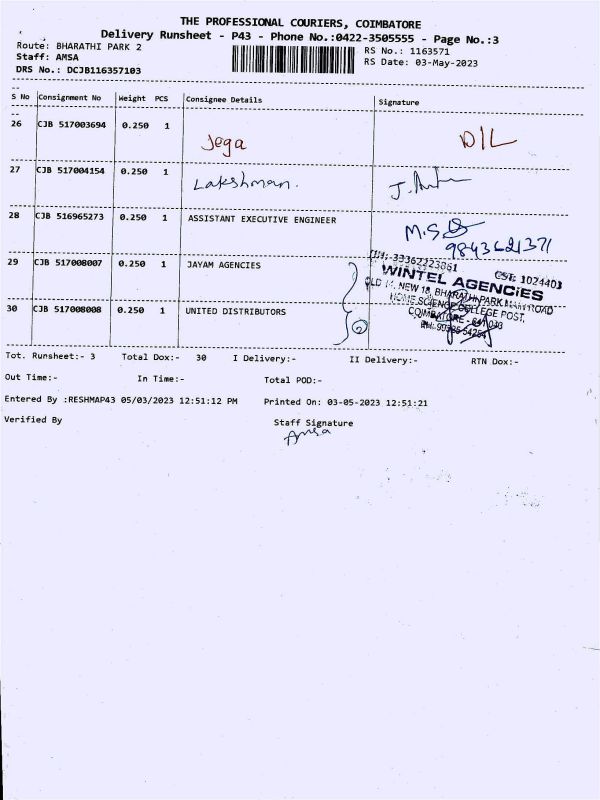 THE PROFESSIONAL COURIERS, COIMBATORE
Delivery Runsheet - P43 - Phone No.:0422-3505555 - Page No.:3
Route: BHARATHI PARK 2
RS No.: 1163571
Staff: AMSA
RS Date: 03-May-2023
DRS No.: DCJB116357103
S No Consignment No Weight PCS Consignee Details Signature
26 CJB 517003694 0.250 1 Jega D/L
27 CJB 517004154 0.250 1 Lakshman.
28 CJB 516965273 0.250 1 ASSISTANT EXECUTIVE ENGINEER
9843621371
29 CJB 517008007 0.250 1 JAYAM AGENCIES
CST: 1024403
WINTEL AGENCiES
NEW 18, BHARATHI PARK ROAD
HOME SCIENCE COLLEGE POST,
COIMBATORE - 641 043
30 CJB 517008008 0.250 1 UNITED DISTRIBUTORS
2
Tot. Runsheet:- 3 Total Dox:- 30 I Delivery:- II Delivery:- RTN Dox:-
Out Time:- In Time:- Total POD:-
Entered By :RESHMAP43 05/03/2023 12:51:12 PM Printed On: 03-05-2023 12:51:21
Verified By Staff Signature
Amsa